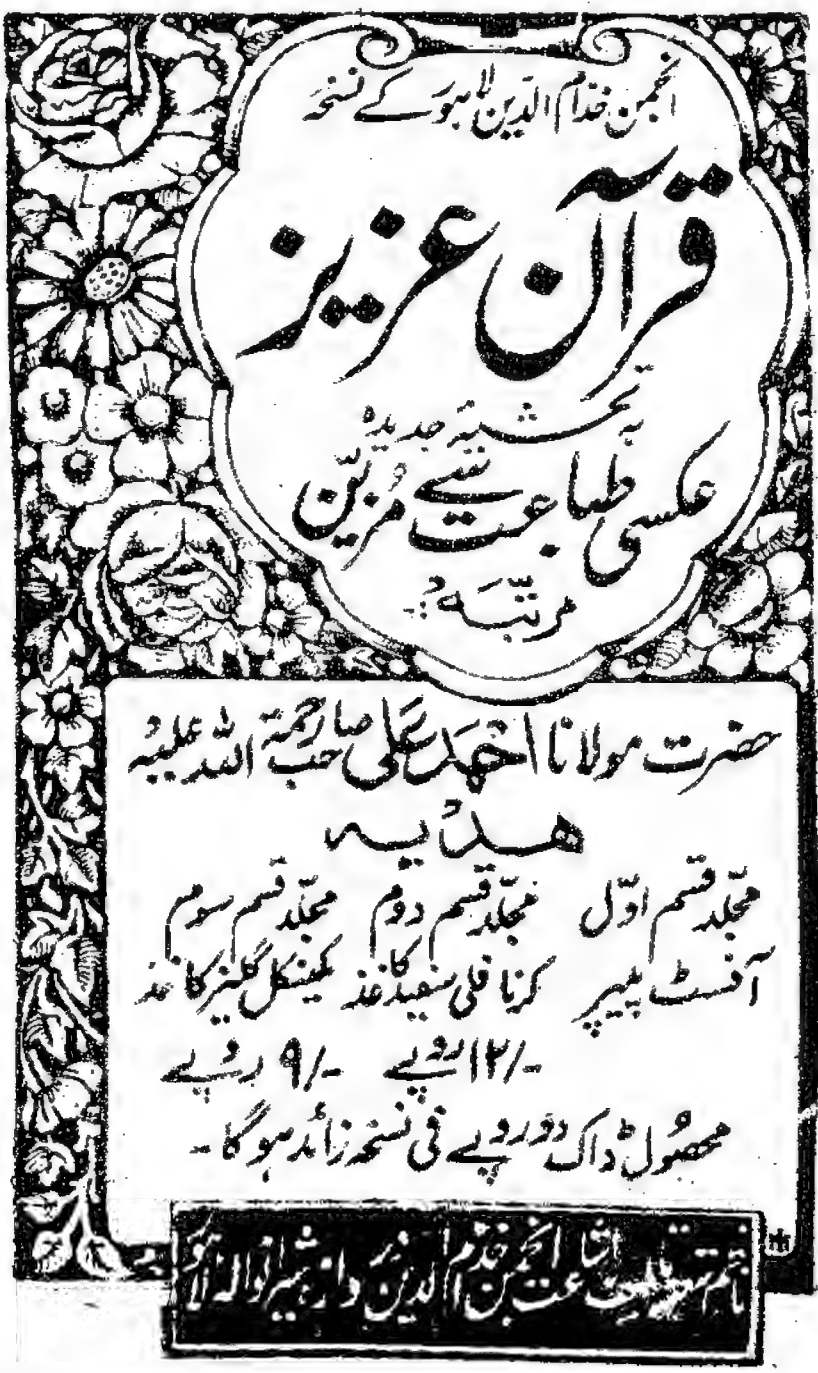 انجمن خدّام الدّین لاہور کے نسخہ
قرآن عزیز
بہ تحشیۂ جدیدہ
عکسی طباعت سے مُزیّن
مرتّبہ
حضرت مولانا احمد علی صاحب رحمۃ اللہ علیہ
ھدیہ
مجلّد قسم اوّل مجلّد قسم دوم مجلّد قسم سوم
آفسٹ پیپر کرنافلی سفید کاغذ کیمنیکل گلیز کاغذ
۱۲/- روپے ۹/- روپے
محصول ڈاک دو روپے فی نسخہ زائد ہوگا۔
ناظم شعبہ اشاعت انجمن خدّام الدین دروازہ شیرانوالہ لاہور